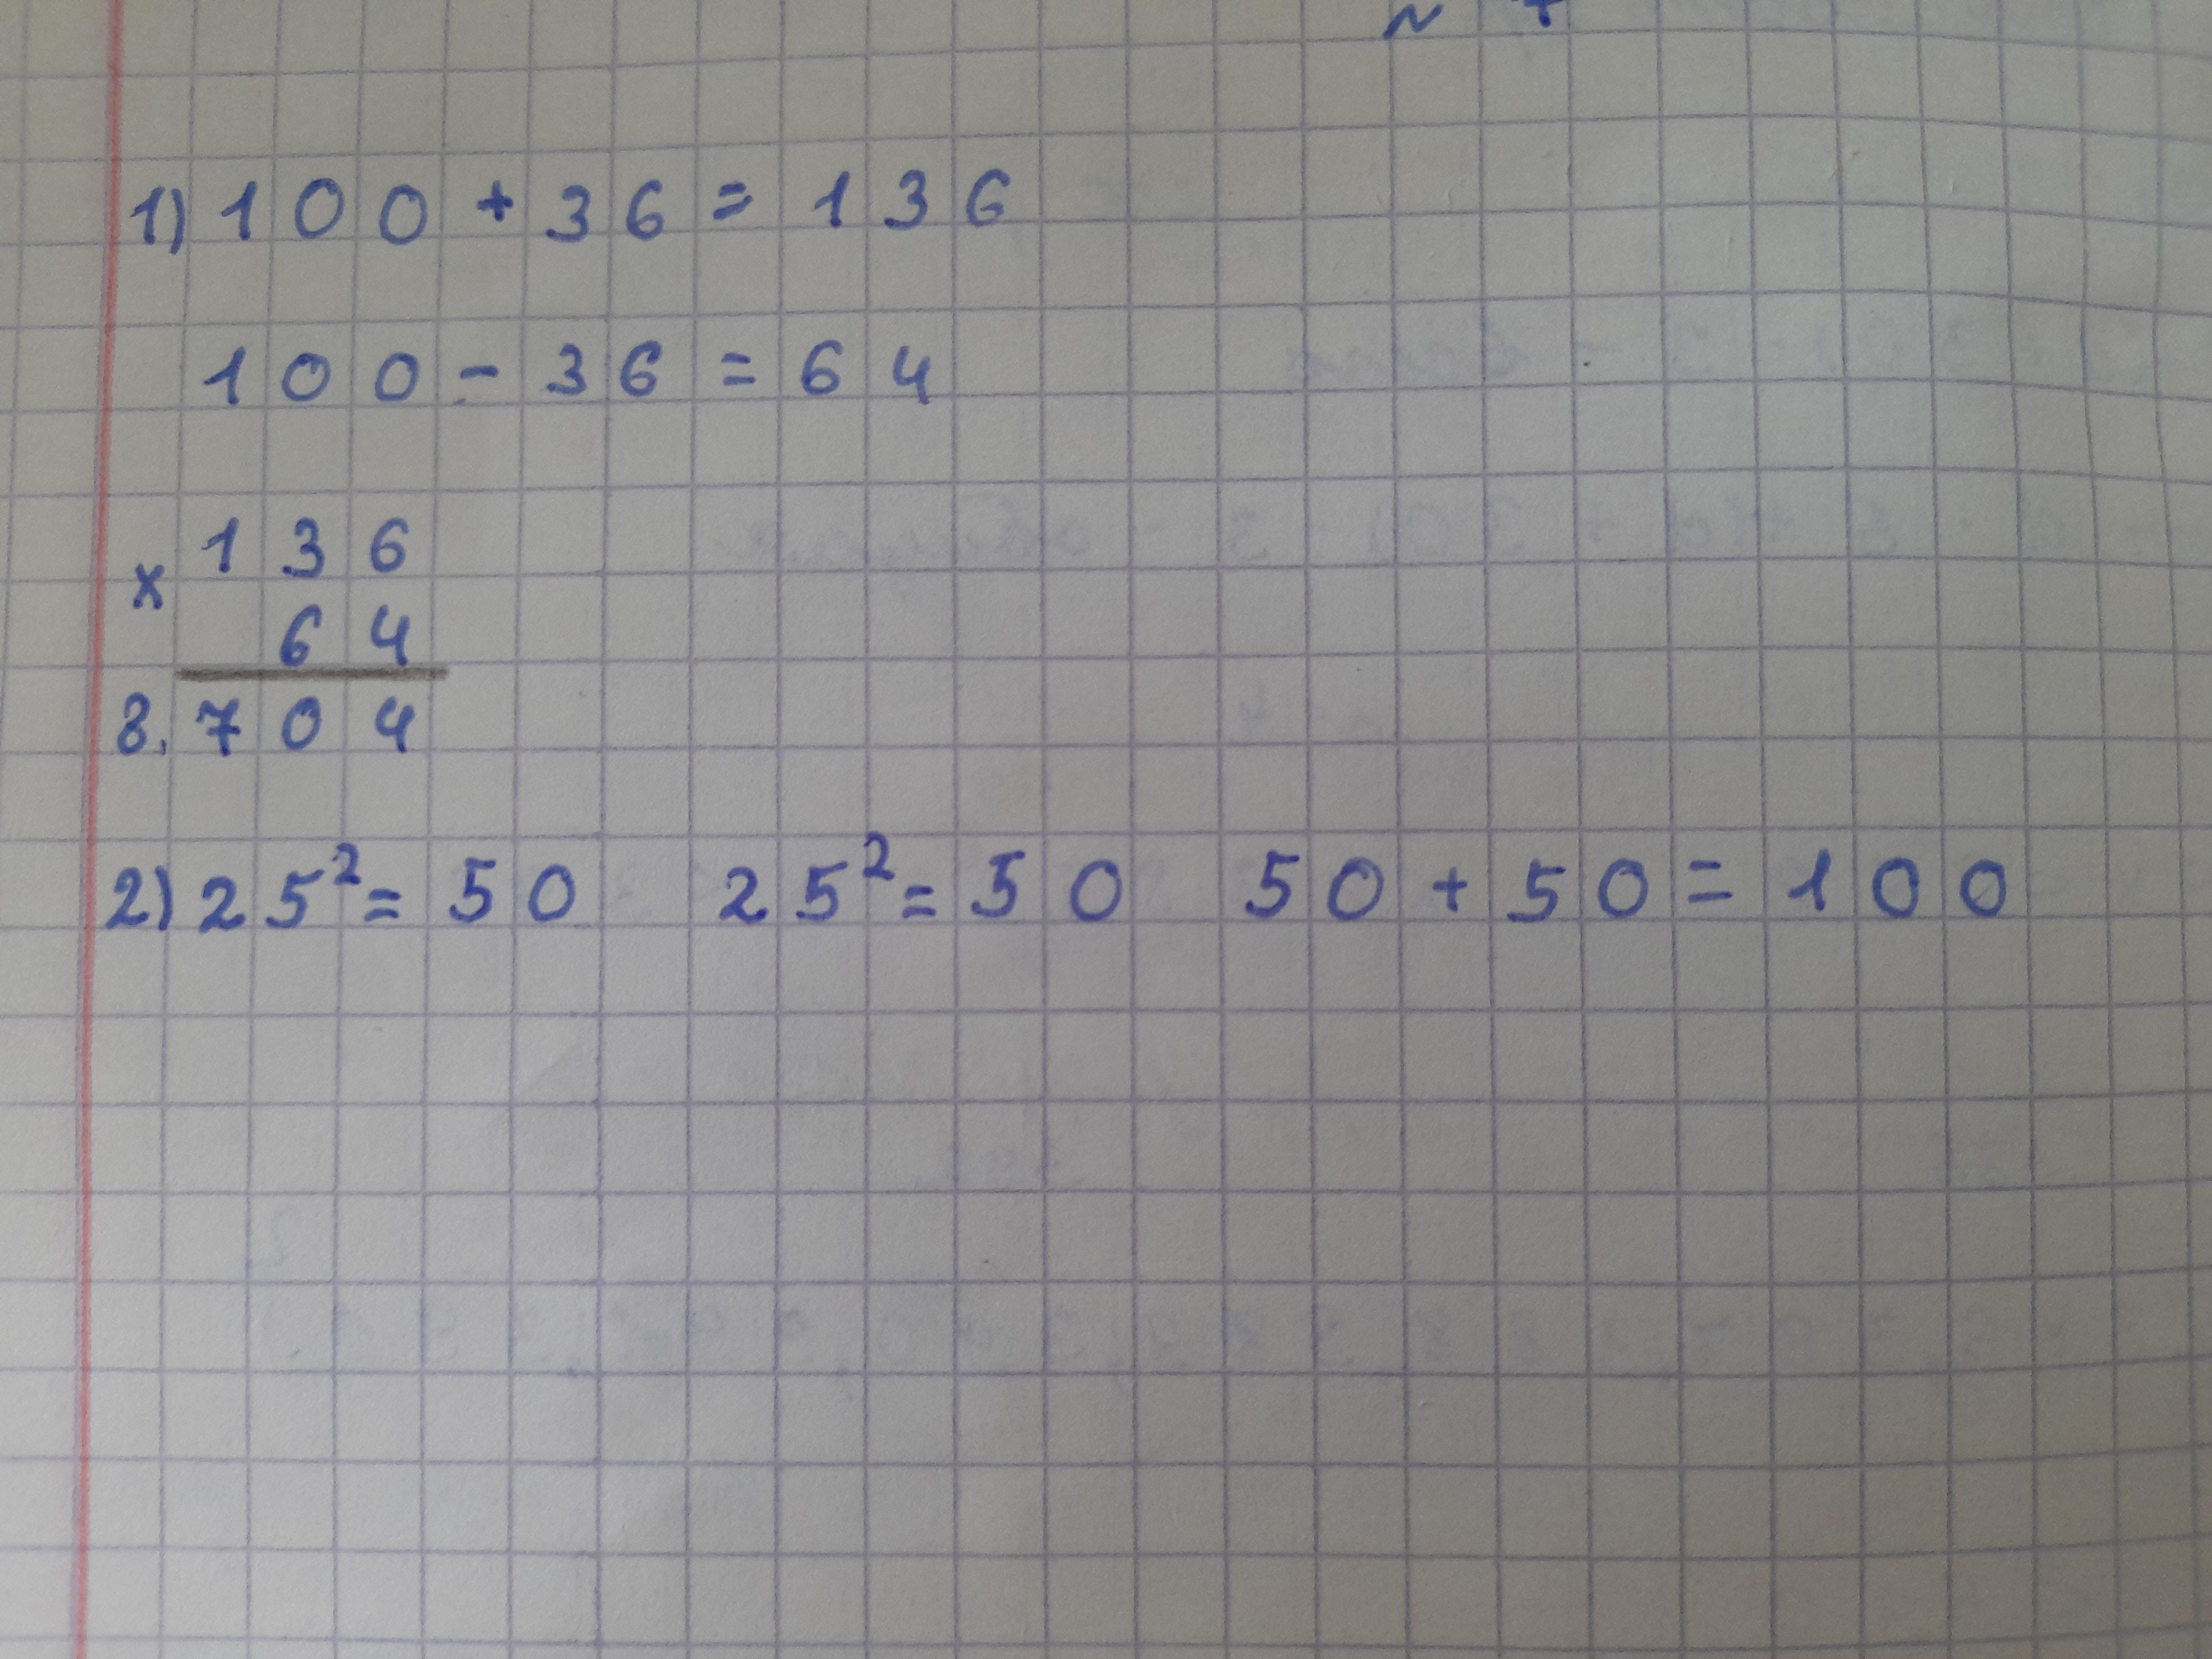 1) 100 + 36 = 136
100 - 36 = 64
136
x
64
8.704
2) 25² = 50 25² = 50 50 + 50 = 100